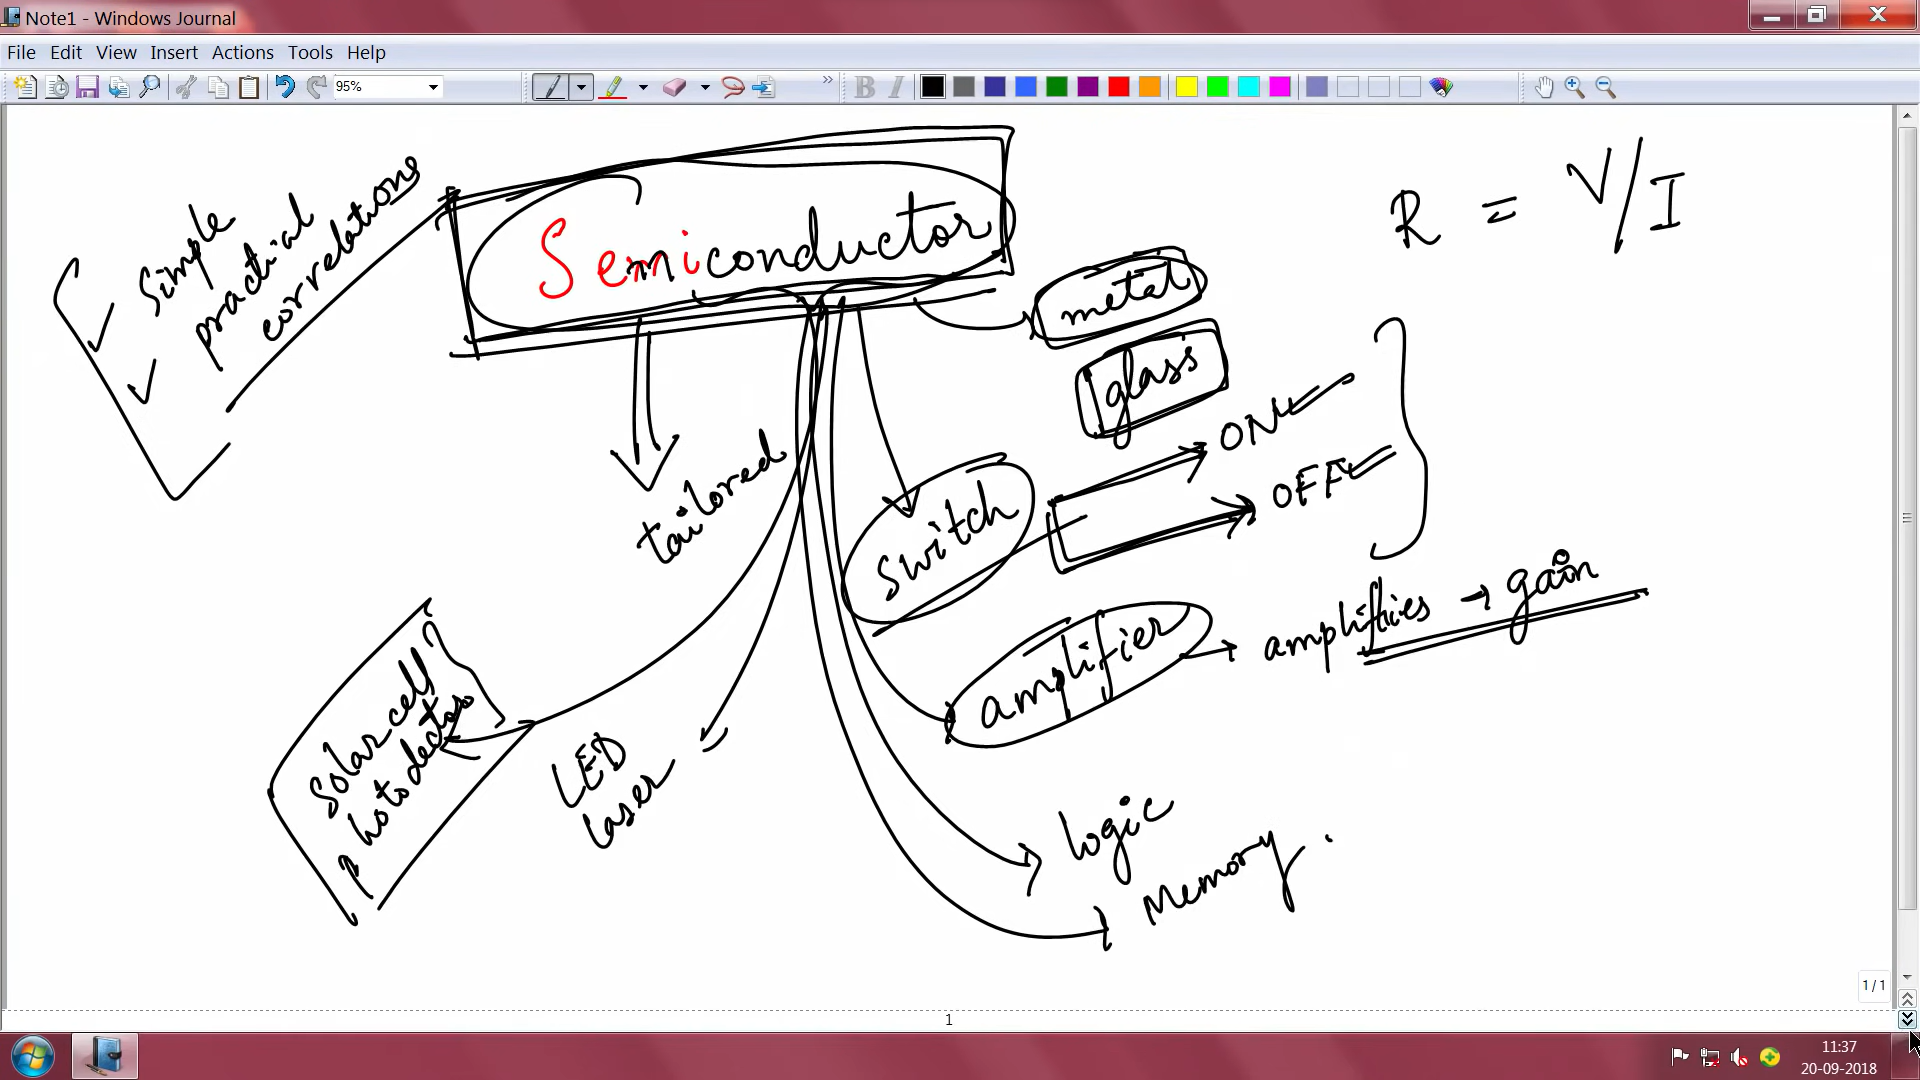 Note1 - Windows Journal
File Edit View Insert Actions Tools Help
95%
B I
Simple
practical
correlations
Semiconductor
R = V/I
metal
glass
tailored
switch
ON
OFF
amplifier → amplifies → gain
Solar cell
photodector
LED
Laser
logic
Memory
1 / 1
1
11:37
20-09-2018